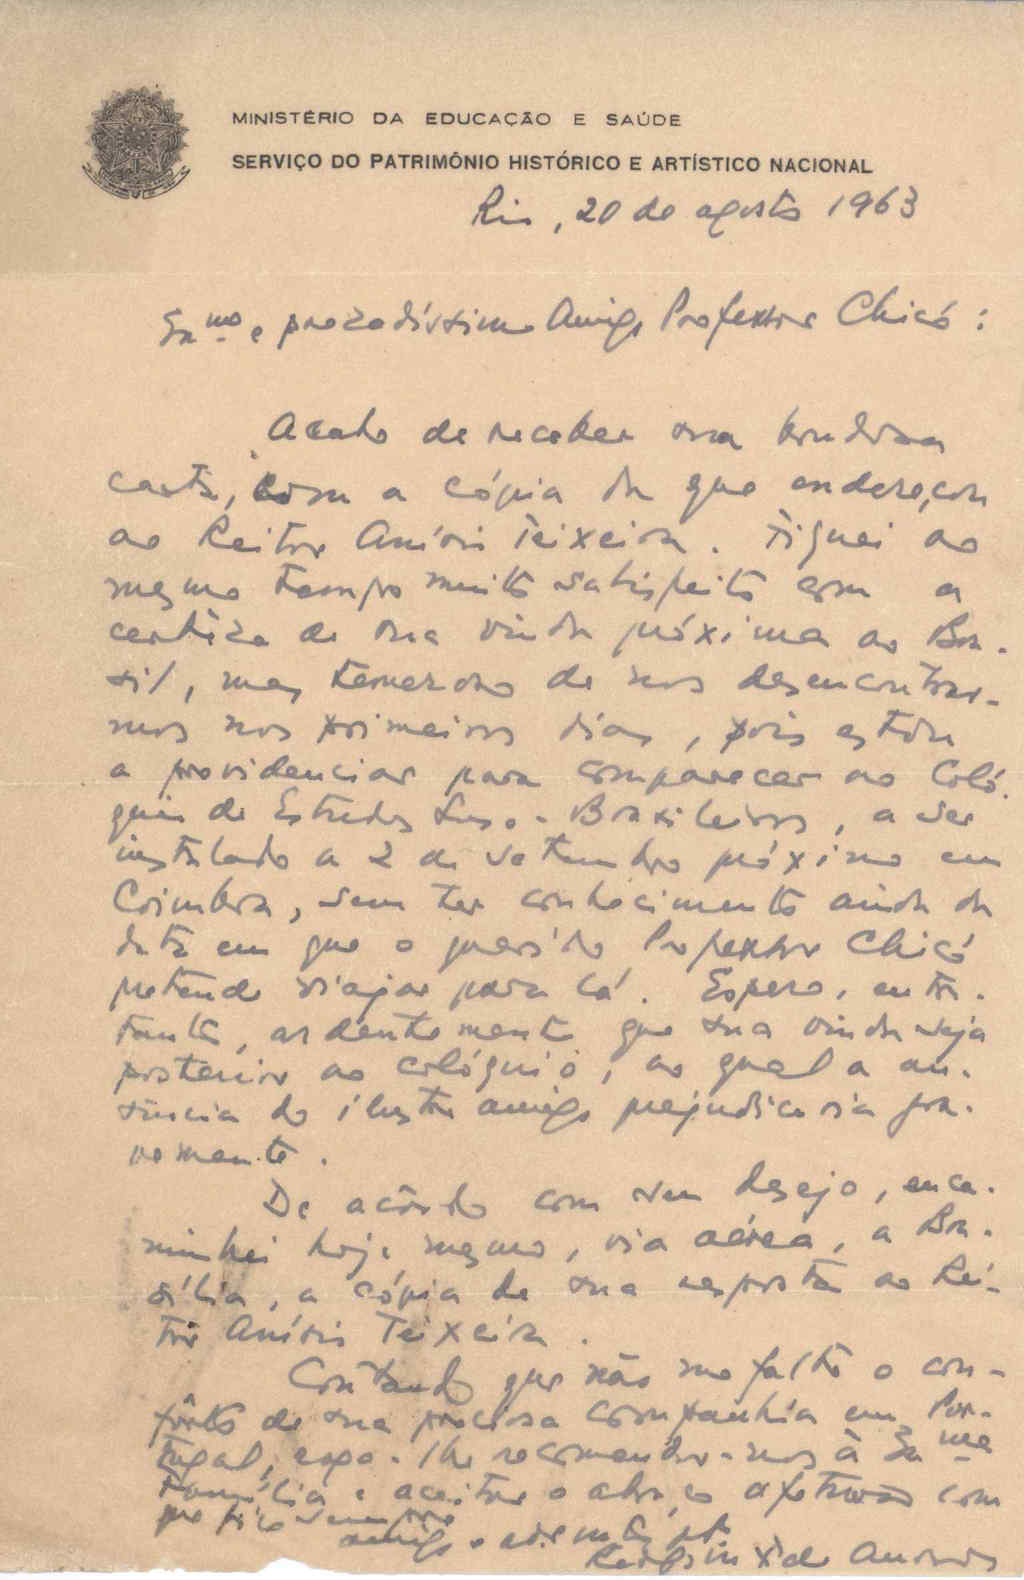 MINISTÉRIO DA EDUCAÇÃO E SAÚDE
SERVIÇO DO PATRIMÔNIO HISTÓRICO E ARTÍSTICO NACIONAL
Rio, 20 de agosto 1963
Exmo. e prezadíssimo Amigo Professor Chicó:
Acabo de receber sua bondosa
carta, com a cópia da que endereçou
ao Reitor Anísio Teixeira. Fiquei ao
mesmo tempo muito satisfeito com a
certeza de sua vinda próxima ao Bra-
sil, mas temeroso de nos desencontrar-
mos nos primeiros dias, pois estou
a providenciar para comparecer ao Coló-
quio de Estudos Luso-Brasileiros, a ser
instalado a 2 de setembro próximo em
Coimbra, sem ter conhecimento ainda da
data em que o querido Professor Chicó
pretende viajar para cá. Espero, entre-
tanto, ardentemente que sua vinda seja
posterior ao colóquio, ao qual a au-
sência do ilustre amigo prejudicaria gra-
vemente.
De acôrdo com seu desejo, enca-
minhei hoje mesmo, via aérea, a Bra-
sília, a cópia de sua resposta ao Rei-
tor Anísio Teixeira.
Contando que não me falte o con-
fôrto de sua preciosa companhia em Por-
tugal, peço-lhe recomendar-nos à Exma.
Família e aceitar o abraço afetuoso com
que fico sempre
amigo e admor. gto.
Rodrigo M. F. de Andrade